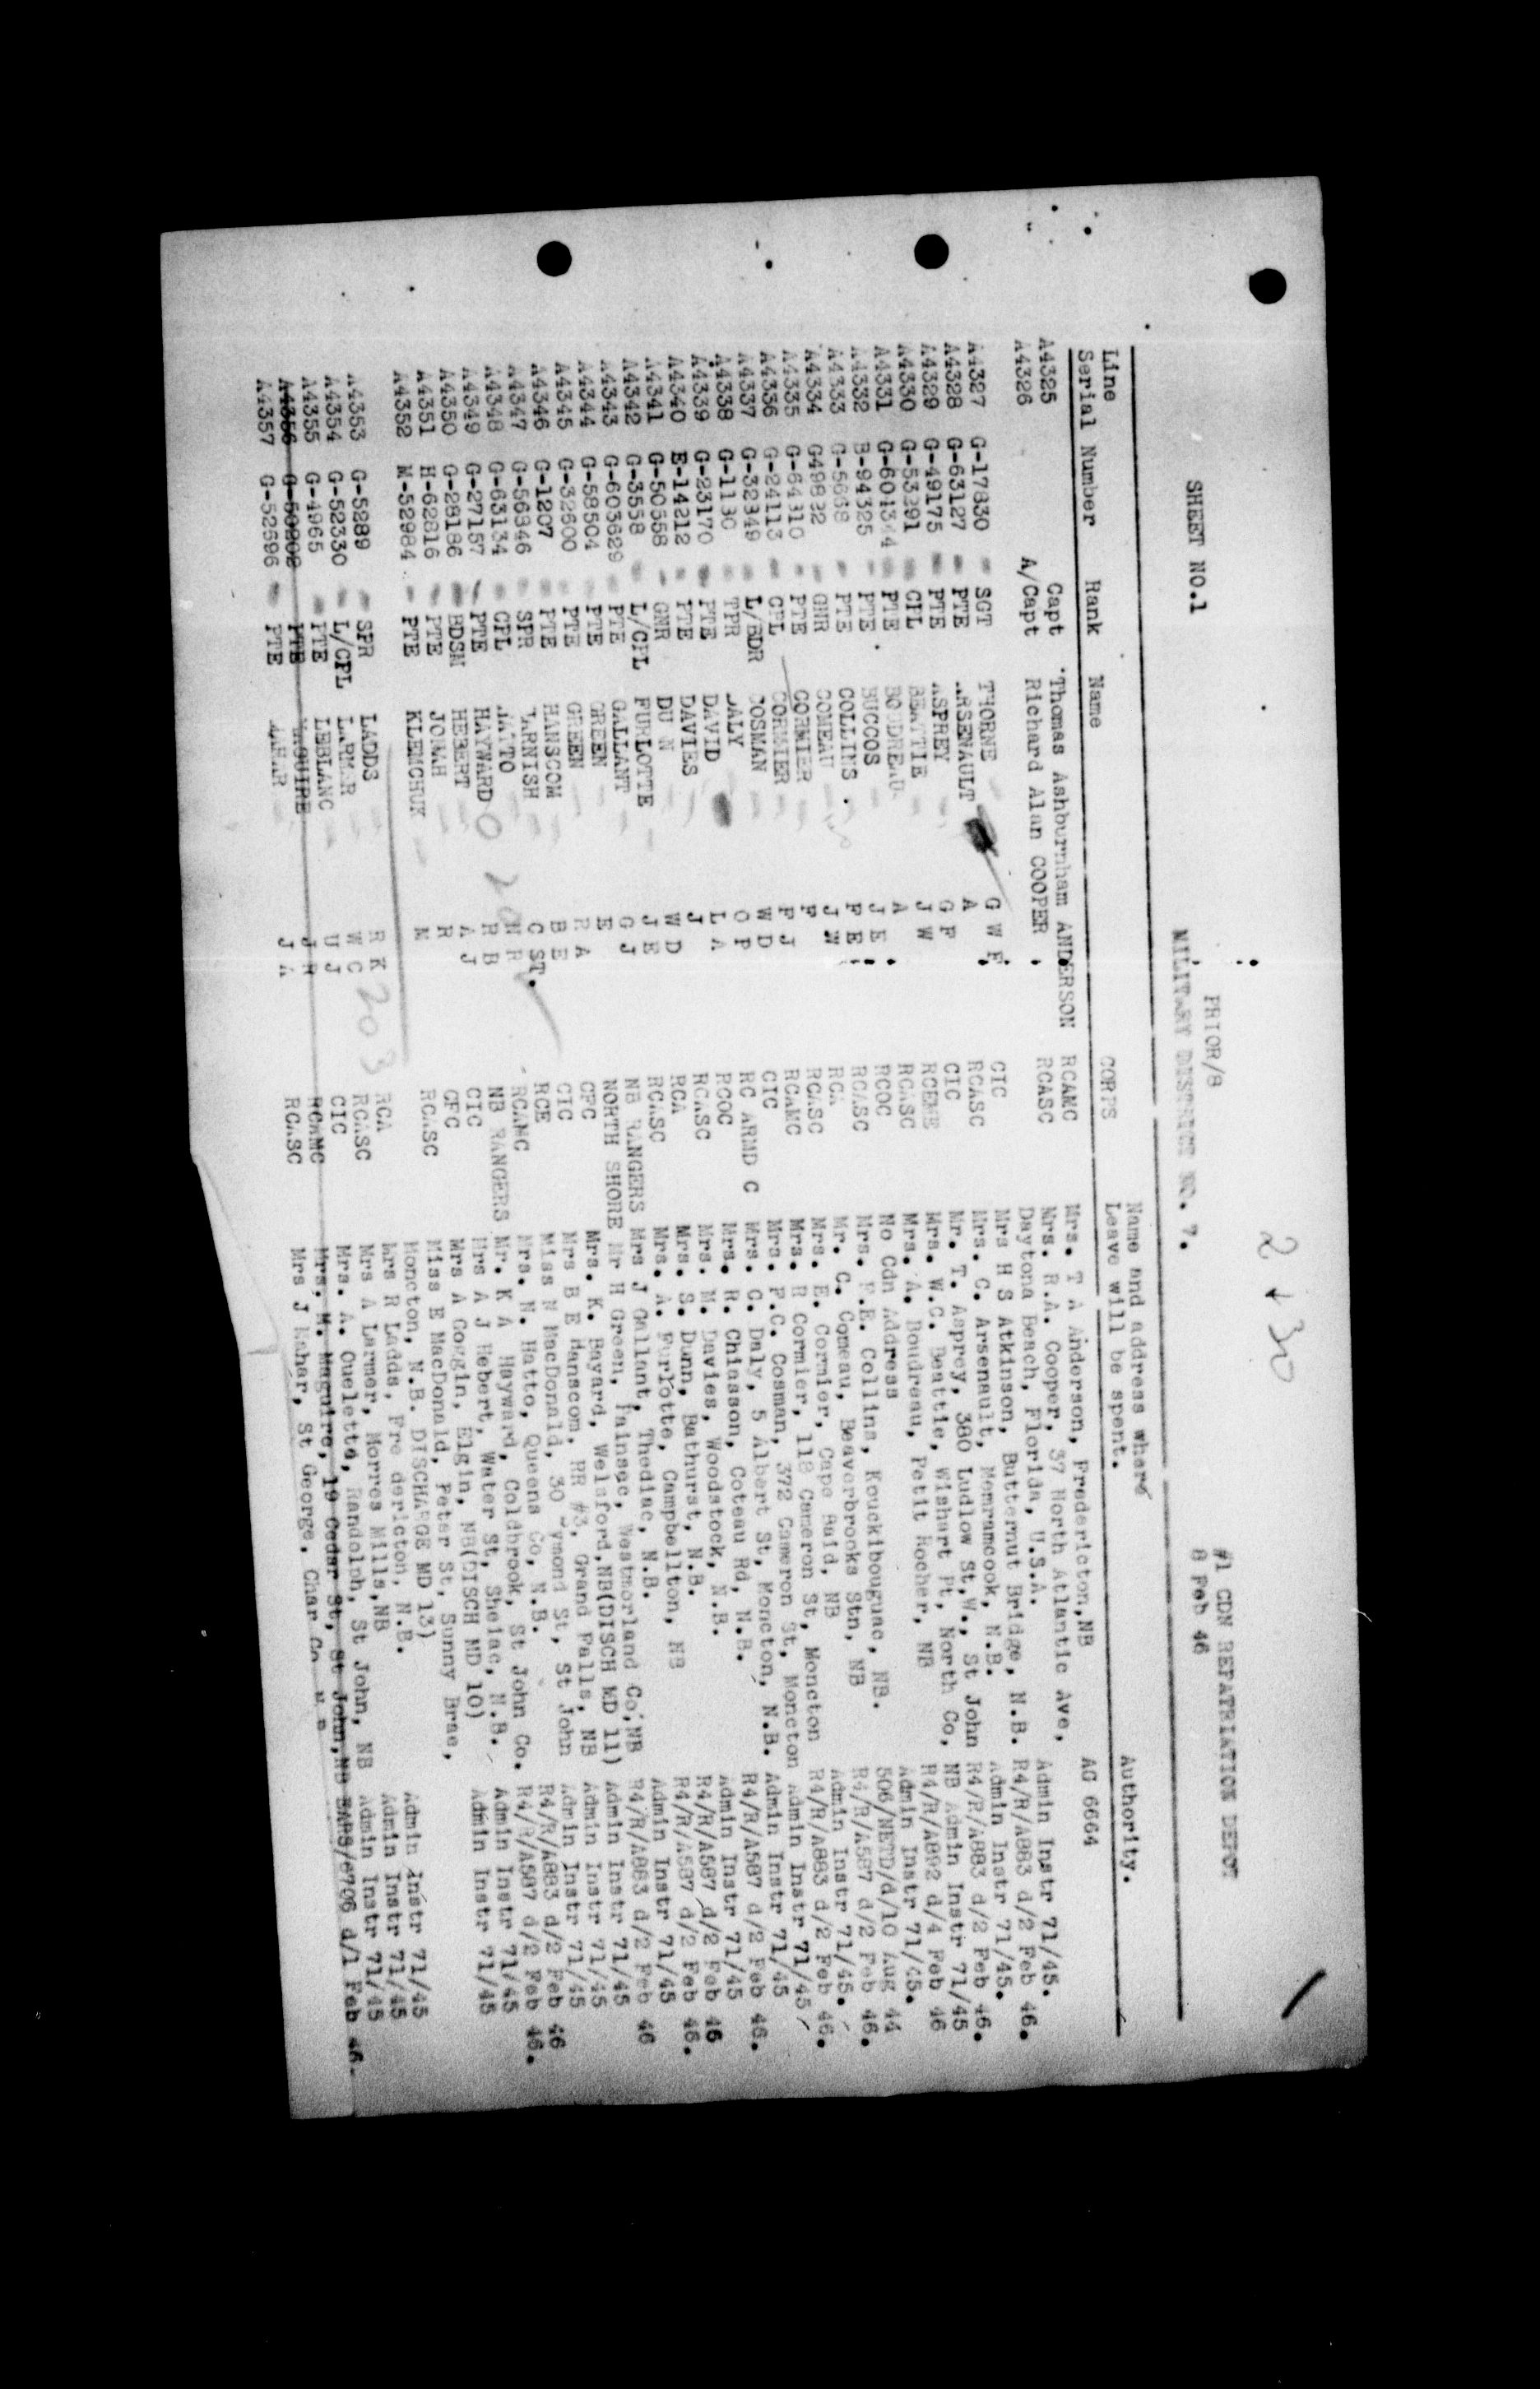 2 + 30
PRIOR/8 #1 CDN REPATRIATION DEPOT
SHEET NO.1 MILITARY DISTRICT NO. 7. 8 Feb 46
Line Name and address where Authority.
Serial Number Rank Name CORPS Leave will be spent.
A4325 Capt Thomas Ashburnham ANDERSON RCAMC Mrs. T A Anderson, Fredericton,NB AG 6664
A4326 A/Capt Richard Alan COOPER RCASC Mrs. R.A. Cooper, 37 North Atlantic Ave,
Daytona Beach, Florida, U.S.A. Admin Instr 71/45.
A4327 G-17830 SGT THORNE G W F CIC Mrs H S Atkinson, Butternut Bridge, N.B. R4/R/A883 d/2 Feb 46.
A4328 G-63127 PTE ARSENAULT A RCASC Mrs. C. Arsenault, Memramcook, N.B. Admin Instr 71/45.
A4329 G-49175 PTE ASPREY G F CIC Mr. T. Asprey, 380 Ludlow St,W., St John R4/R/A883 d/2 Feb 46.
A4330 G-53291 CPL BEATTIE J W RCEME Mrs. W.C. Beattie, Wishart Pt, North Co, NB Admin Instr 71/45
A4331 G-601344 PTE BOUDREAU A RCASC Mrs. A. Boudreau, Petit Rocher, NB R4/R/A892 d/4 Feb 46
A4332 B-94325 PTE BUCCOS J E RCOC No Cdn Address Admin Instr 71/45.
A4333 G-5668 PTE COLLINS F E RCASC Mrs. F.E. Collins, Kouckibouguac, NB. 506/NETD/d/10 Aug 44
A4334 G49822 GNR COMEAU J W RCA Mr. C. Comeau, Beaverbrooks Stn, NB R4/R/A587 d/2 Feb 46.
A4335 G-64310 PTE CORMIER F RCASC Mrs. E. Cormier, Cape Bald, NB Admin Instr 71/45.
A4336 G-24113 CPL CORMIER F J RCAMC Mrs. R Cormier, 118 Cameron St, Moncton R4/R/A883 d/2 Feb 46.
A4337 G-32349 L/BDR COSMAN W D CIC Mrs. P.C. Cosman, 372 Cameron St, Moncton Admin Instr 71/45
A4338 G-1130 TPR DALY O P RC ARMD C Mrs. G. Daly, 5 Albert St, Moncton, N.B. Admin Instr 71/45
A4339 G-23170 PTE DAVID L A RCOC Mrs. R. Chiasson, Coteau Rd, N.B. R4/R/A587 d/2 Feb 46.
A4340 E-14212 PTE DAVIES J RCASC Mrs. M. Davies, Woodstock, N.B. Admin Instr 71/45
A4341 G-50558 GNR DU N W D RCA Mrs. S. Dunn, Bathurst, N.B. R4/R/A587 d/2 Feb 46
A4342 G-3558 L/CPL FURLOTTE J E RCASC Mrs. A. Furlotte, Campbellton, NB R4/R/A587 d/2 Feb 46.
A4343 G-603629 PTE GALLANT G J NB RANGERS Mrs J Gallant, Thediac, N.B. Admin Instr 71/45
A4344 G-58504 PTE GREEN E NORTH SHORE Mr H Green, Painsec, Westmorland Co,NB R4/R/A883 d/2 Feb 46
A4345 G-32600 PTE GREEN R A CFC Mrs. K. Bayard, Welsford,NB(DISCH MD 11) Admin Instr 71/45
A4346 G-1207 PTE HANSCOM B E CIC Mrs B E Hanscom, RR #3, Grand Falls, NB Admin Instr 71/45
A4347 G-56846 SPR HARNISH C ST. RCE Miss N MacDonald, 30 ymond St, St John Admin Instr 71/45
A4348 G-63134 CPL HATTO N R RCAMC Mrs. N. Hatto, Queens Co, N.B. R4/R/A883 d/2 Feb 46
A4349 G-27157 PTE HAYWARD H B NB RANGERS Mr. K A Hayward, Coldbrook, St John Co. R4/R/A587 d/2 Feb 46.
A4350 G-28186 BDSN HEBERT A J CIC Mrs A J Hebert, Water St, Shediac, N.B. Admin Instr 71/45
A4351 H-62816 PTE JONAH R CFC Mrs A Goggin, Elgin, NB(DISCH MD 10) Admin Instr 71/45
A4352 M-52984 PTE KLEMCHUK M RCASC Miss E MacDonald, Peter St, Sunny Brae,
Moncton, N.B. DISCHARGE MD 13)
203
A4353 G-5289 SPR LADDS R K RCA Mrs R Ladds, Fredericton, N.B. Admin Instr 71/45
A4354 G-52330 L/CPL LARMER W C RCASC Mrs A Larmer, Morres Mills,NB Admin Instr 71/45
A4355 G-4965 PTE LEBLANC U J CIC Mrs. A. Ouelette, Randolph, St John, NB Admin Instr 71/45
A4356 G-50202 PTE MAGUIRE J R RCAMC Mrs. M. Maguire, 19 Cedar St, St John,NB EAPS/6706 d/1 Feb 46.
A4357 G-52596 PTE MAHAR J A RCASC Mrs J Mahar, St George, Char Co N B